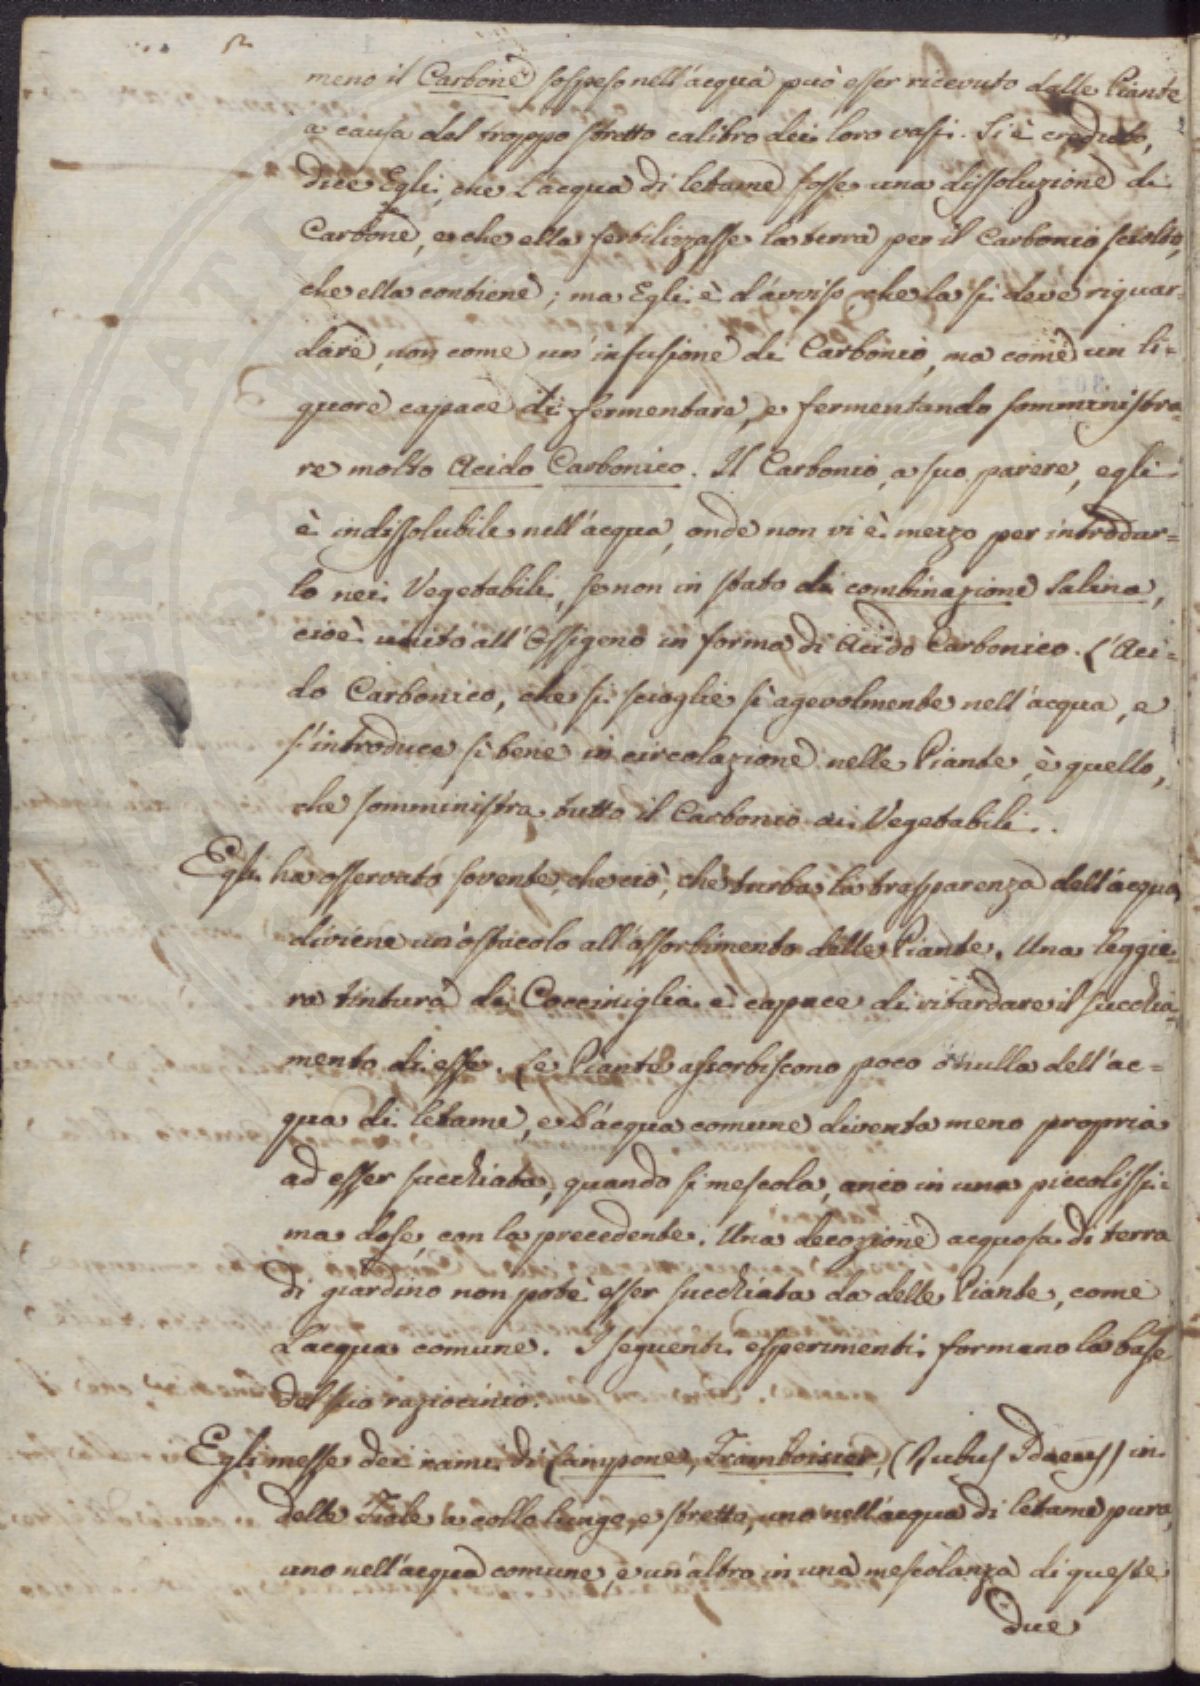 meno il Carbone sospeso nell'acqua può esser ricevuto dalle Piante
a causa del troppo stretto calibro dei loro vasi. Si è creduto,
dice Egli, che l'acqua di letame fosse una dissoluzione di
Carbone, e che ella fertilizzasse la terra per il Carbonio sciolto,
che ella contiene; ma Egli è d'avviso che la si deve riguar-
dare, non come un' infusione di Carbonio, ma come un li-
quore capace di fermentare, e fermentando somministra-
re molto Acido Carbonico. Il Carbonio, a suo parere, egli
è indissolubile nell'acqua, onde non vi è mezzo per introdur-
lo nei Vegetabili, se non in stato di combinazione Salina,
cioè unito all'Ossigeno in forma di Acido Carbonico. L'Aci-
do Carbonico, che si scioglie sì agevolmente nell'acqua, e
s'introduce sì bene in circolazione nelle Piante, è quello,
che somministra tutto il Carbonio ai Vegetabili.
Egli ha osservato sovente, che ciò, che turba la trasparenza dell'acqua
diviene un'ostacolo all'assorbimento delle Piante. Una leggie-
ra tintura di Cocciniglia è capace di ritardare il succhia-
mento di esse. Le Piante assorbiscono poco o nulla dell'ac-
qua di letame, e l'acqua comune diventa meno propria
ad esser succhiata, quando si mescola, anco in una piccolissi-
ma dose, con la precedente. Una decozione acquosa di terra
di giardino non potè esser succhiata da delle Piante, come
l'acqua comune. I seguenti esperimenti formano la base
del suo raziocinio.
Egli messe dei rami di Lampone, Framboisier, (Rubus Idaeus) in
delle Fiale a collo lungo, e stretto, uno nell'acqua di letame pura,
uno nell'acqua comune, e un'altro in una mescolanza di queste
due